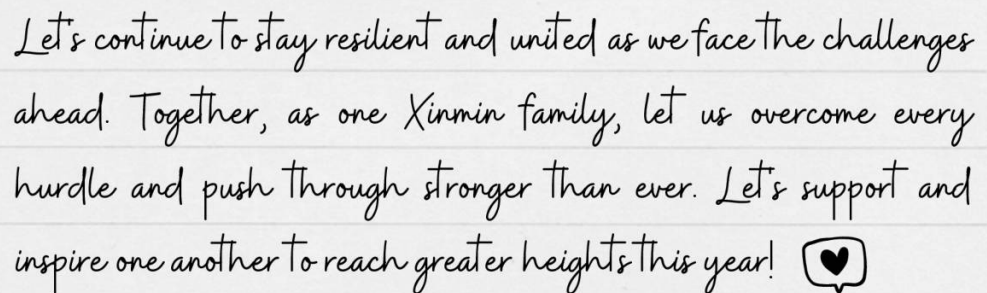 Let's continue to stay resilient and united as we face the challenges
ahead. Together, as one Xinmin family, let us overcome every
hurdle and push through stronger than ever. Let's support and
inspire one another to reach greater heights this year!